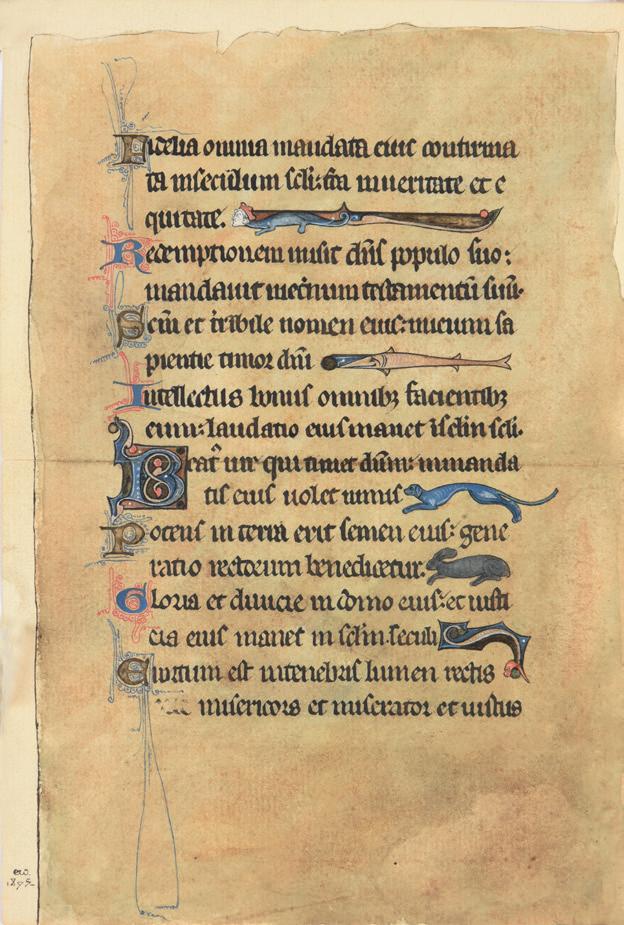 Fidelia omnia mandata eius confirma
ta inseculum scli: fca inueritate et e
quitate.
Redemptionem misit dns populo suo:
mandauit ineternum testamentu suu.
Scm et tribile nomen eius: inicium sa
pientie timor dni
Intellectus bonus omnibz facientibz
eum: laudatio eius manet isclm scli.
Beat uir qui timet dnm: inmanda
tis eius uolet nimis
Potens in terra erit semen eius: gene
ratio rectorum benedicetur.
Gloria et diuicie in domo eius: et iusti
cia eius manet in sclm seculi
Exortum est intenebris lumen rectis
misericors et miserator et iustus